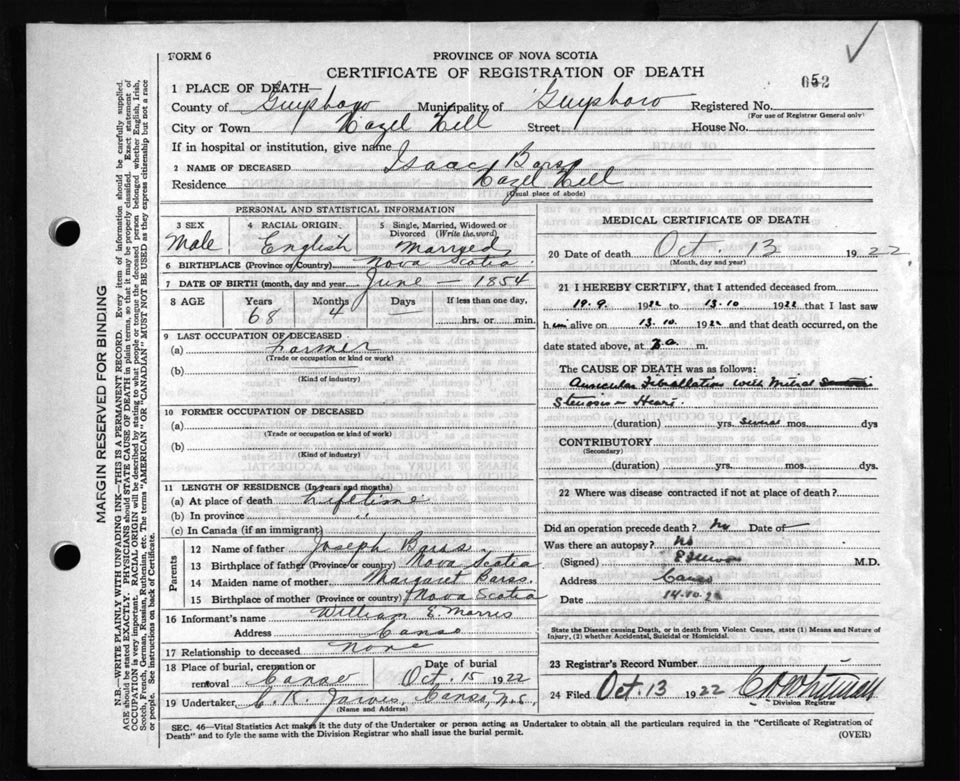 FORM 6
PROVINCE OF NOVA SCOTIA
CERTIFICATE OF REGISTRATION OF DEATH
052
1 PLACE OF DEATH—
County of Guysboro Municipality of Guysboro Registered No.
(For use of Registrar General only)
City or Town Hazel Hill Street House No.
If in hospital or institution, give name
2 NAME OF DECEASED Isaac Barss
Residence Hazel Hill
(Usual place of abode)
PERSONAL AND STATISTICAL INFORMATION
3 SEX 4 RACIAL ORIGIN 5 Single, Married, Widowed or
Divorced (Write the word)
Male English Married
6 BIRTHPLACE (Province or Country) Nova Scotia
7 DATE OF BIRTH (month, day and year) June — 1854
8 AGE Years Months Days If less than one day,
68 4 — hrs. or min.
9 LAST OCCUPATION OF DECEASED
(a) Farmer
(Trade or occupation or kind or work)
(b)
(Kind of industry)
10 FORMER OCCUPATION OF DECEASED
(a)
(Trade or occupation or kind of work)
(b)
(Kind of industry)
11 LENGTH OF RESIDENCE (In years and months)
(a) At place of death Lifetime
(b) In province "
(c) In Canada (if an immigrant)
Parents
12 Name of father Joseph Barss
13 Birthplace of father (Province or country) Nova Scotia
14 Maiden name of mother Margaret Barss.
15 Birthplace of mother (Province or country) Nova Scotia
16 Informant's name William E. Morris
Address Canso
17 Relationship to deceased None
18 Place of burial, cremation or Date of burial
removal Canso Oct. 15 1922
19 Undertaker C. K. Jarvis, Canso, N.S.
(Name and Address)
MEDICAL CERTIFICATE OF DEATH
20 Date of death Oct. 13 1922.
(Month, day and year)
21 I HEREBY CERTIFY, that I attended deceased from
19.9. 1922 to 13.10 1922 that I last saw
him alive on 13.10 1922 and that death occurred, on the
date stated above, at a. m.
The CAUSE OF DEATH was as follows:
Auricular Fibrillation with Mitral
Stenosis — Heart.
(duration) yrs. several mos. dys
CONTRIBUTORY
(Secondary)
(duration) yrs. mos. dys.
22 Where was disease contracted if not at place of death?
Did an operation precede death? No Date of —
Was there an autopsy? No
(Signed) M.D.
Address Canso
Date 14.10.22
State the Disease causing Death, or in death from Violent Causes, state (1) Means and Nature of
Injury, (2) whether Accidental, Suicidal or Homicidal.
23 Registrar's Record Number
24 Filed Oct. 13 1922 Whitman
Division Registrar
SEC. 46—Vital Statistics Act makes it the duty of the Undertaker or person acting as Undertaker to obtain all the particulars required in the "Certificate of Registration of
Death" and to fyle the same with the Division Registrar who shall issue the burial permit.
(OVER)
MARGIN RESERVED FOR BINDING
N.B.—WRITE PLAINLY WITH UNFADING INK—THIS IS A PERMANENT RECORD. Every item of information should be carefully supplied.
AGE should be stated EXACTLY. PHYSICIANS should STATE CAUSE OF DEATH in plain terms, so that it may be properly classified. Exact statement of
OCCUPATION is very important. RACIAL ORIGIN will be described by stating to what people or tongue the deceased person belonged whether English, Irish,
Scotch, French, German, Russian, Ruthenian, etc. The terms "AMERICAN" OR "CANADIAN" MUST NOT BE USED as they express citizenship but not a race
or people. See instructions on back of Certificate.